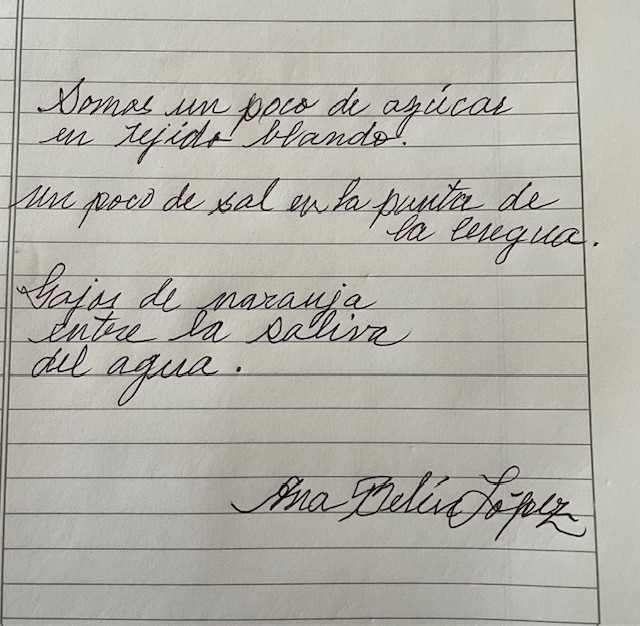 Somos un poco de azúcar
en tejido blando.
un poco de sal en la punta de
la lengua.
Gajos de naranja
entre la saliva
del agua.
Ana Belén López